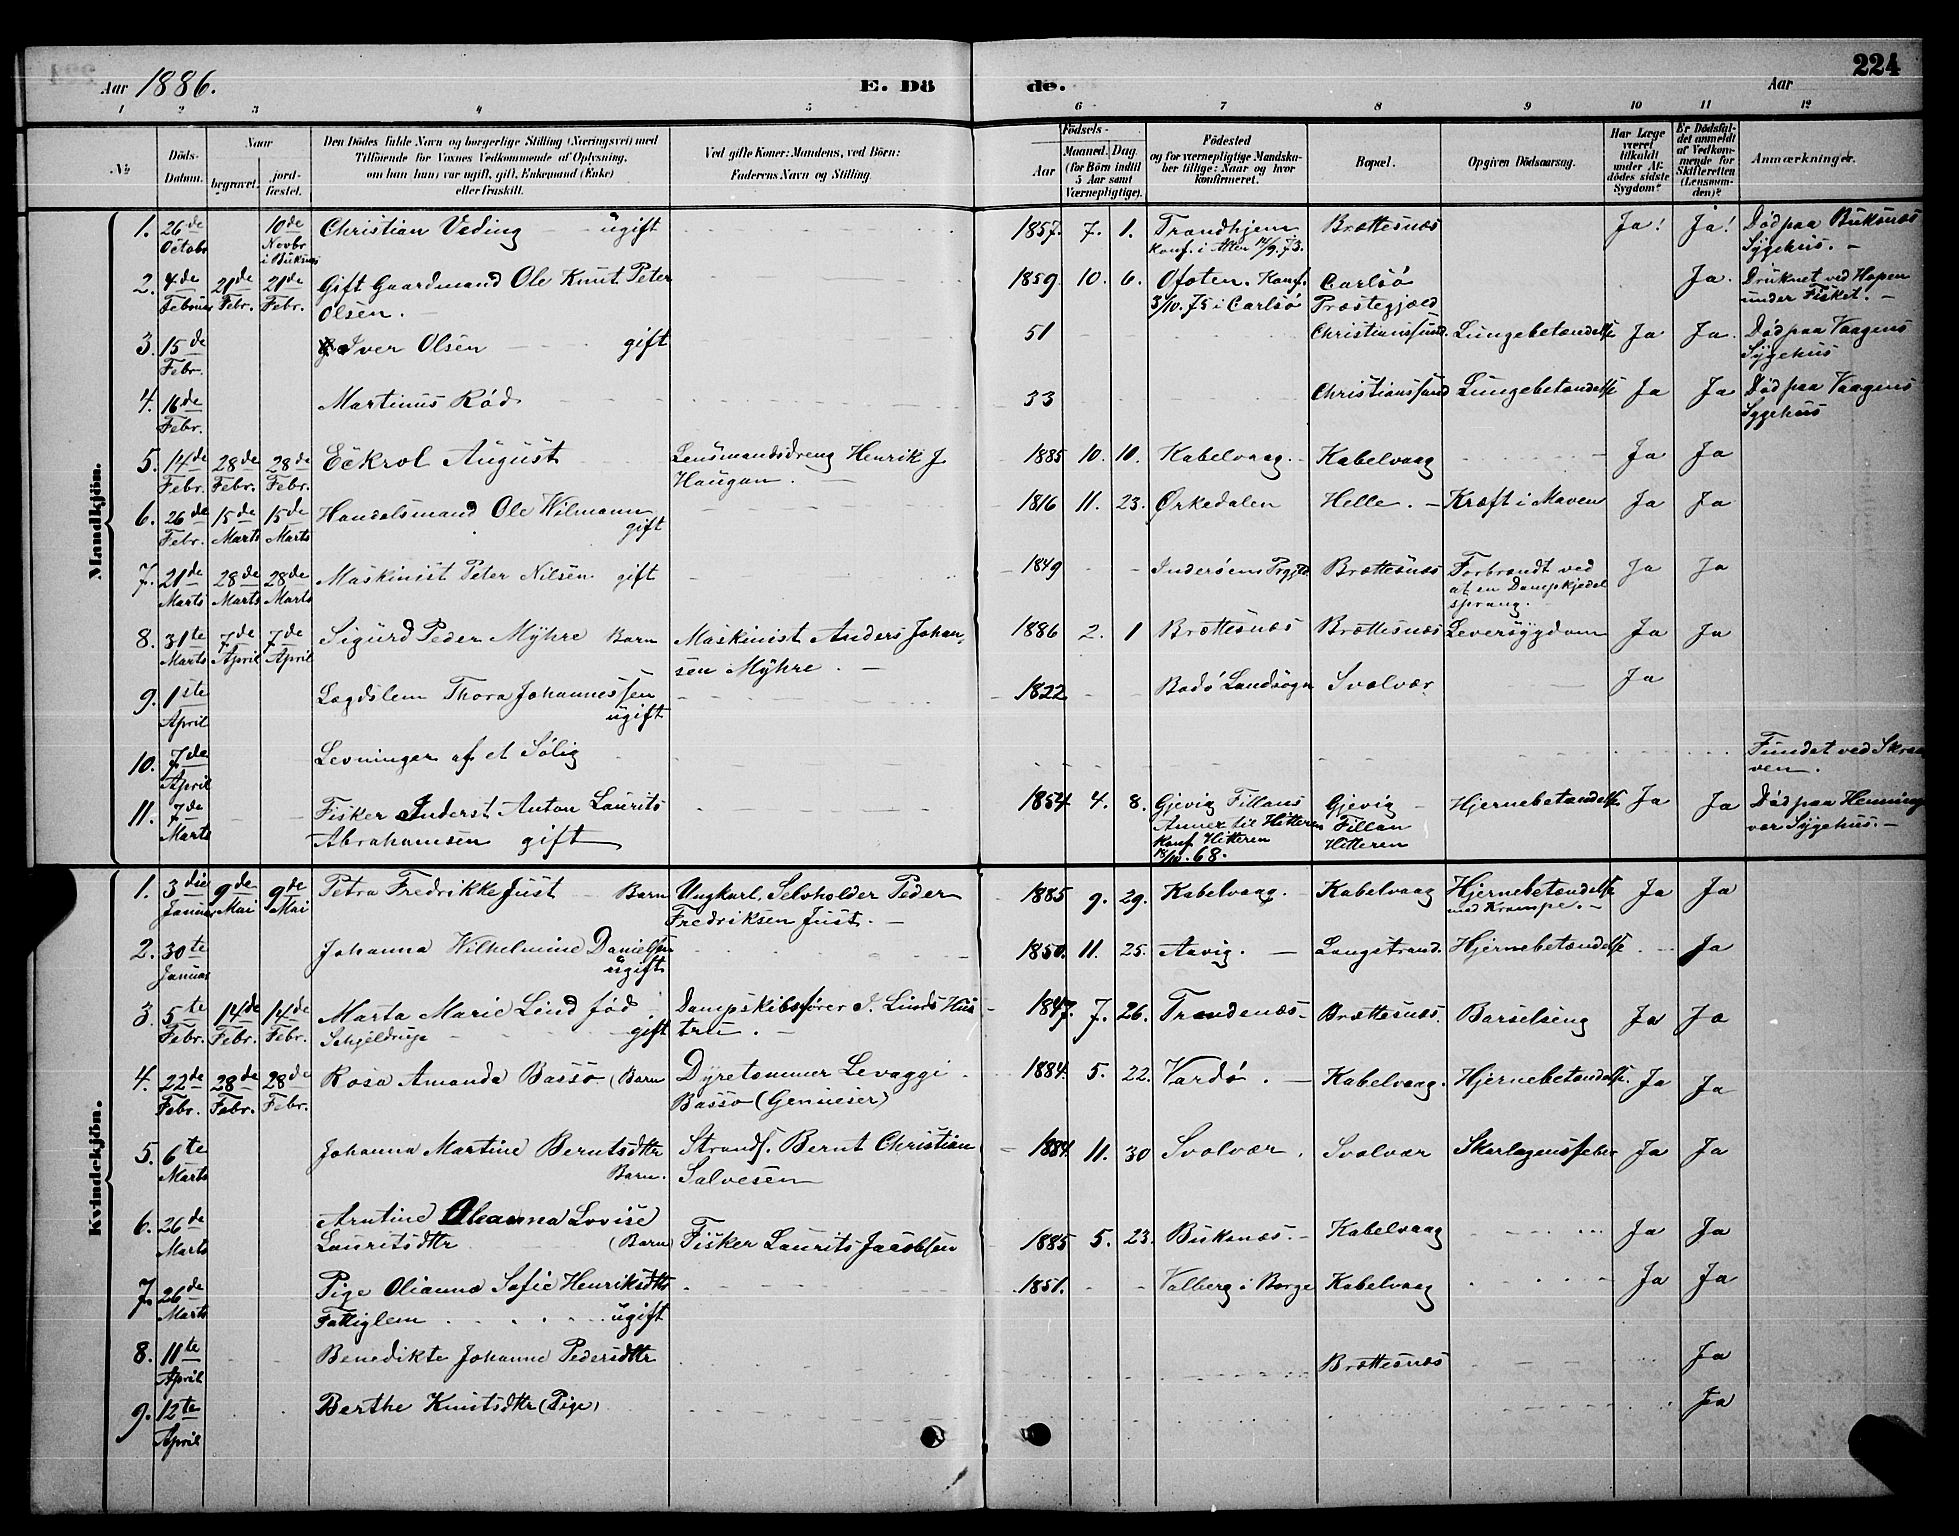 Aar 1886. E. Dö de. Aar 224
1 2 3 4 5 6 7 8 9 10 11 12
№ Döds-Datum. Naar begravet. jord-fæstet. Den Dödes fulde Navn og borgerlige Stilling (Næringsvei) med Tilföiende for Voxnes Vedkommende af Oplysning, om han (hun) var ugift, gift, Enkemand (Enke) eller fraskilt. Ved gifte Koner: Mandens, ved Börn: Faderens Navn og Stilling. Födsels- Aar Maaned. Dag. (for Börn indtil 5 Aar samt Værnepligtige). Födested og for værnepligtige Mandskaber tillige: Naar og hvor konfirmeret. Bopæl. Opgiven Dödsaarsag. Har Læge været tilkaldt under Afdödes sidste Sygdom? Er Dödsfaldet anmeldt af Vedkommende for Skifteretten (Lensmanden)? Anmærkninger.
Mandkjön.
1. 26de Octobr 10de Novbr i Buksnæs Christian Veding ugift 1857. 7. 1. Trondhjem Konf. i Brettesnæs Ja! Ja! Död paa Buksnæs Sygehus.
2. 4de Februar 21de Febr. 21de Febr. Gift Gaardmand Ole Knut Peter Olsen. 1859 10. 6. Ofoten. Konf. 3/10.75 i Carlsö Carlsö Præstegjæld Ja. Druknet ved Hopen under Fisket.
3. 15de Febr. Iver Olsen gift 51 Christianssund. Lungebetændelse Ja Ja. Död paa Vaagens Sygehus
4. 16de Febr. Martinus Röd 33 Christianssund Lungebetændelse Ja Ja Död paa Vaagens Sygehus
5. 14de Febr. 28de Febr. 28de Febr. August Lensmandsdreng Henrik J Haugan. 1885 10. 10. Kabelvaag. Kabelvaag Ja Ja
6. 26de Febr. 15de Marts 15de Marts Handelsmand Ole Wilmann gift 1816 11. 23. Ørkedalen Helle. Kræft i Maven Ja Ja
7. 21de Marts 28de Marts 28de Marts Maskinist Peter Nilsen gift 1849 Inderöens Brettesnæs Forbrændt ved at en Dampkjedel sprang. Ja Ja
8. 31te Marts 7de April 7de April Sigurd Peder Myhre Barn Maskinist Anders Johansen Myhre. 1886 2. 1 Brettesnæs Brettesnæs Leversygdom Ja Ja
9. 1ste April Lægdslem Thora Johannessen ugift 1822 Bodö Landsogn Svolvær Ja
10. 7de April Levninger af et Sölig Fundet ved Skraaven.
11. 7de Marts Fisker Inderst Anton Laurits Abrahamsen gift 1854 4. 8. Gjevig Fillans Annex til Hitteren Konf. Hitteren 68. Gjevig Fillan Hitteren Hjernebetændelse Ja Ja Död paa Henningsvær Sygehus.
Kvindekjön.
1. 3die Januar 9de Mai 9de Mai Petra Fredrikke Just Barn Ungkarl, Selvholder Peder Fredriksen Just. 1885 9. 29. Kabelvaag. Kabelvaag Hjernebetændelse med Krampe. Ja Ja
2. 30te Januar Johanna Wilhelmine Danielsen ugift 1850. 11. 25. Aavig. Langstrand. Hjernebetændelse Ja
3. 5te Febr. 14de Febr. 14de Febr. Marta Marie Lind föd Schjeldrup gift Dampskibsförer J. Linds Hustru. 1847. 7. 26. Trondenæs Brettesnæs. Barselseng Ja Ja
4. 22de Febr. 28de Febr. 28de Febr. Rosa Amanda Basso (Barn Dyretæmmer Levaggi Basso (Genueser) 1884. 5. 22. Vardö. Kabelvaag. Hjernebetændelse. Ja Ja
5. 6te Marts Johanna Martine Berntsdtr Barn. Strands. Bernt Christian Salvesen 1884 11. 30 Svolvær. Svolvær Skarlagensfeber Ja Ja
6. 26de Marts Arntine Oleanna Lovise Lauritsdtr (Barn) Fisker Laurits Jacobsen 1885 5. 23. Buksnæs. Kabelvaag Ja Ja
7. 26de Marts Pige Olianna Sofie Henriksdtr Fattiglem ugift 1851. Valberg i Borge Kabelvaag Ja Ja
8. 11te April Benedikte Johanne Pedersdtr Brettesnæs Ja
9. 12te April Berthe Knutsdtr (Pige) Ja